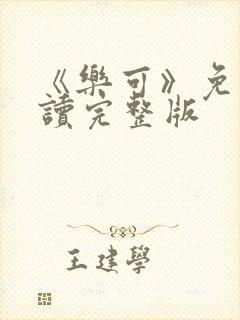 《樂可》免
讀完整版
王建學